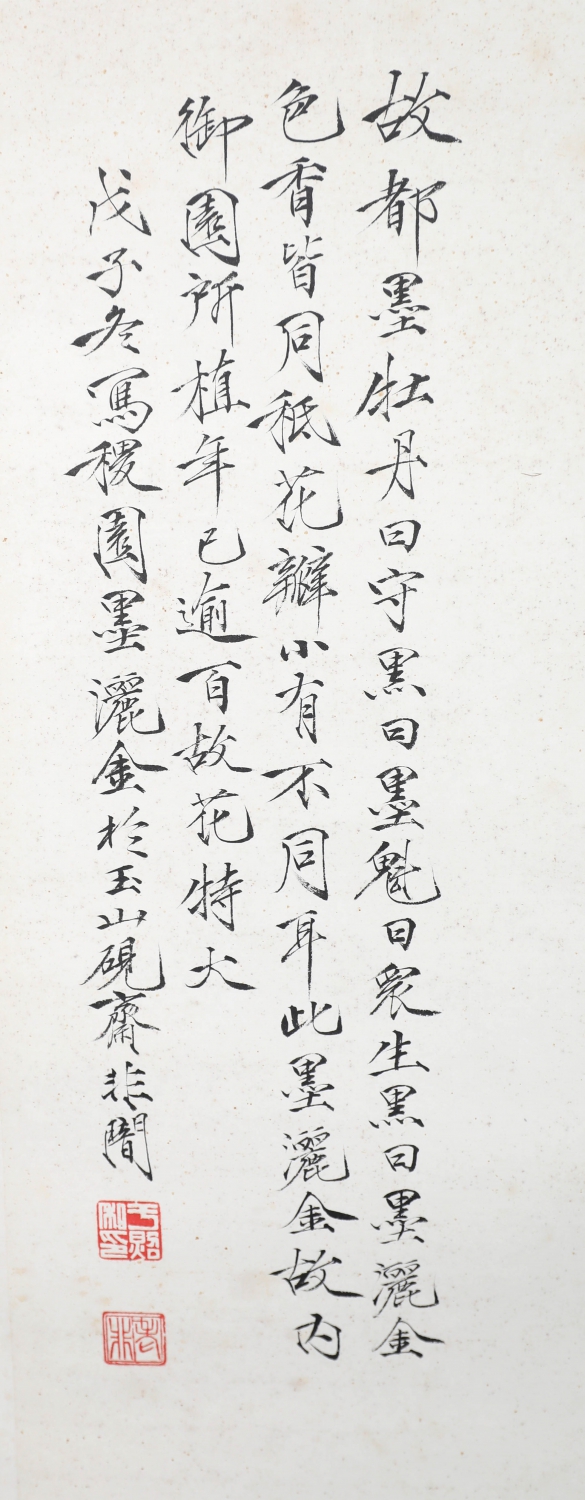 故都墨牡丹曰守黑曰墨魁曰眾生黑曰墨灑金
色香皆同秪花瓣小有不同耳此墨灑金故內
御園所植年已逾百故花特大
戊子冬寫稷園墨灑金於玉山硯齋非闇